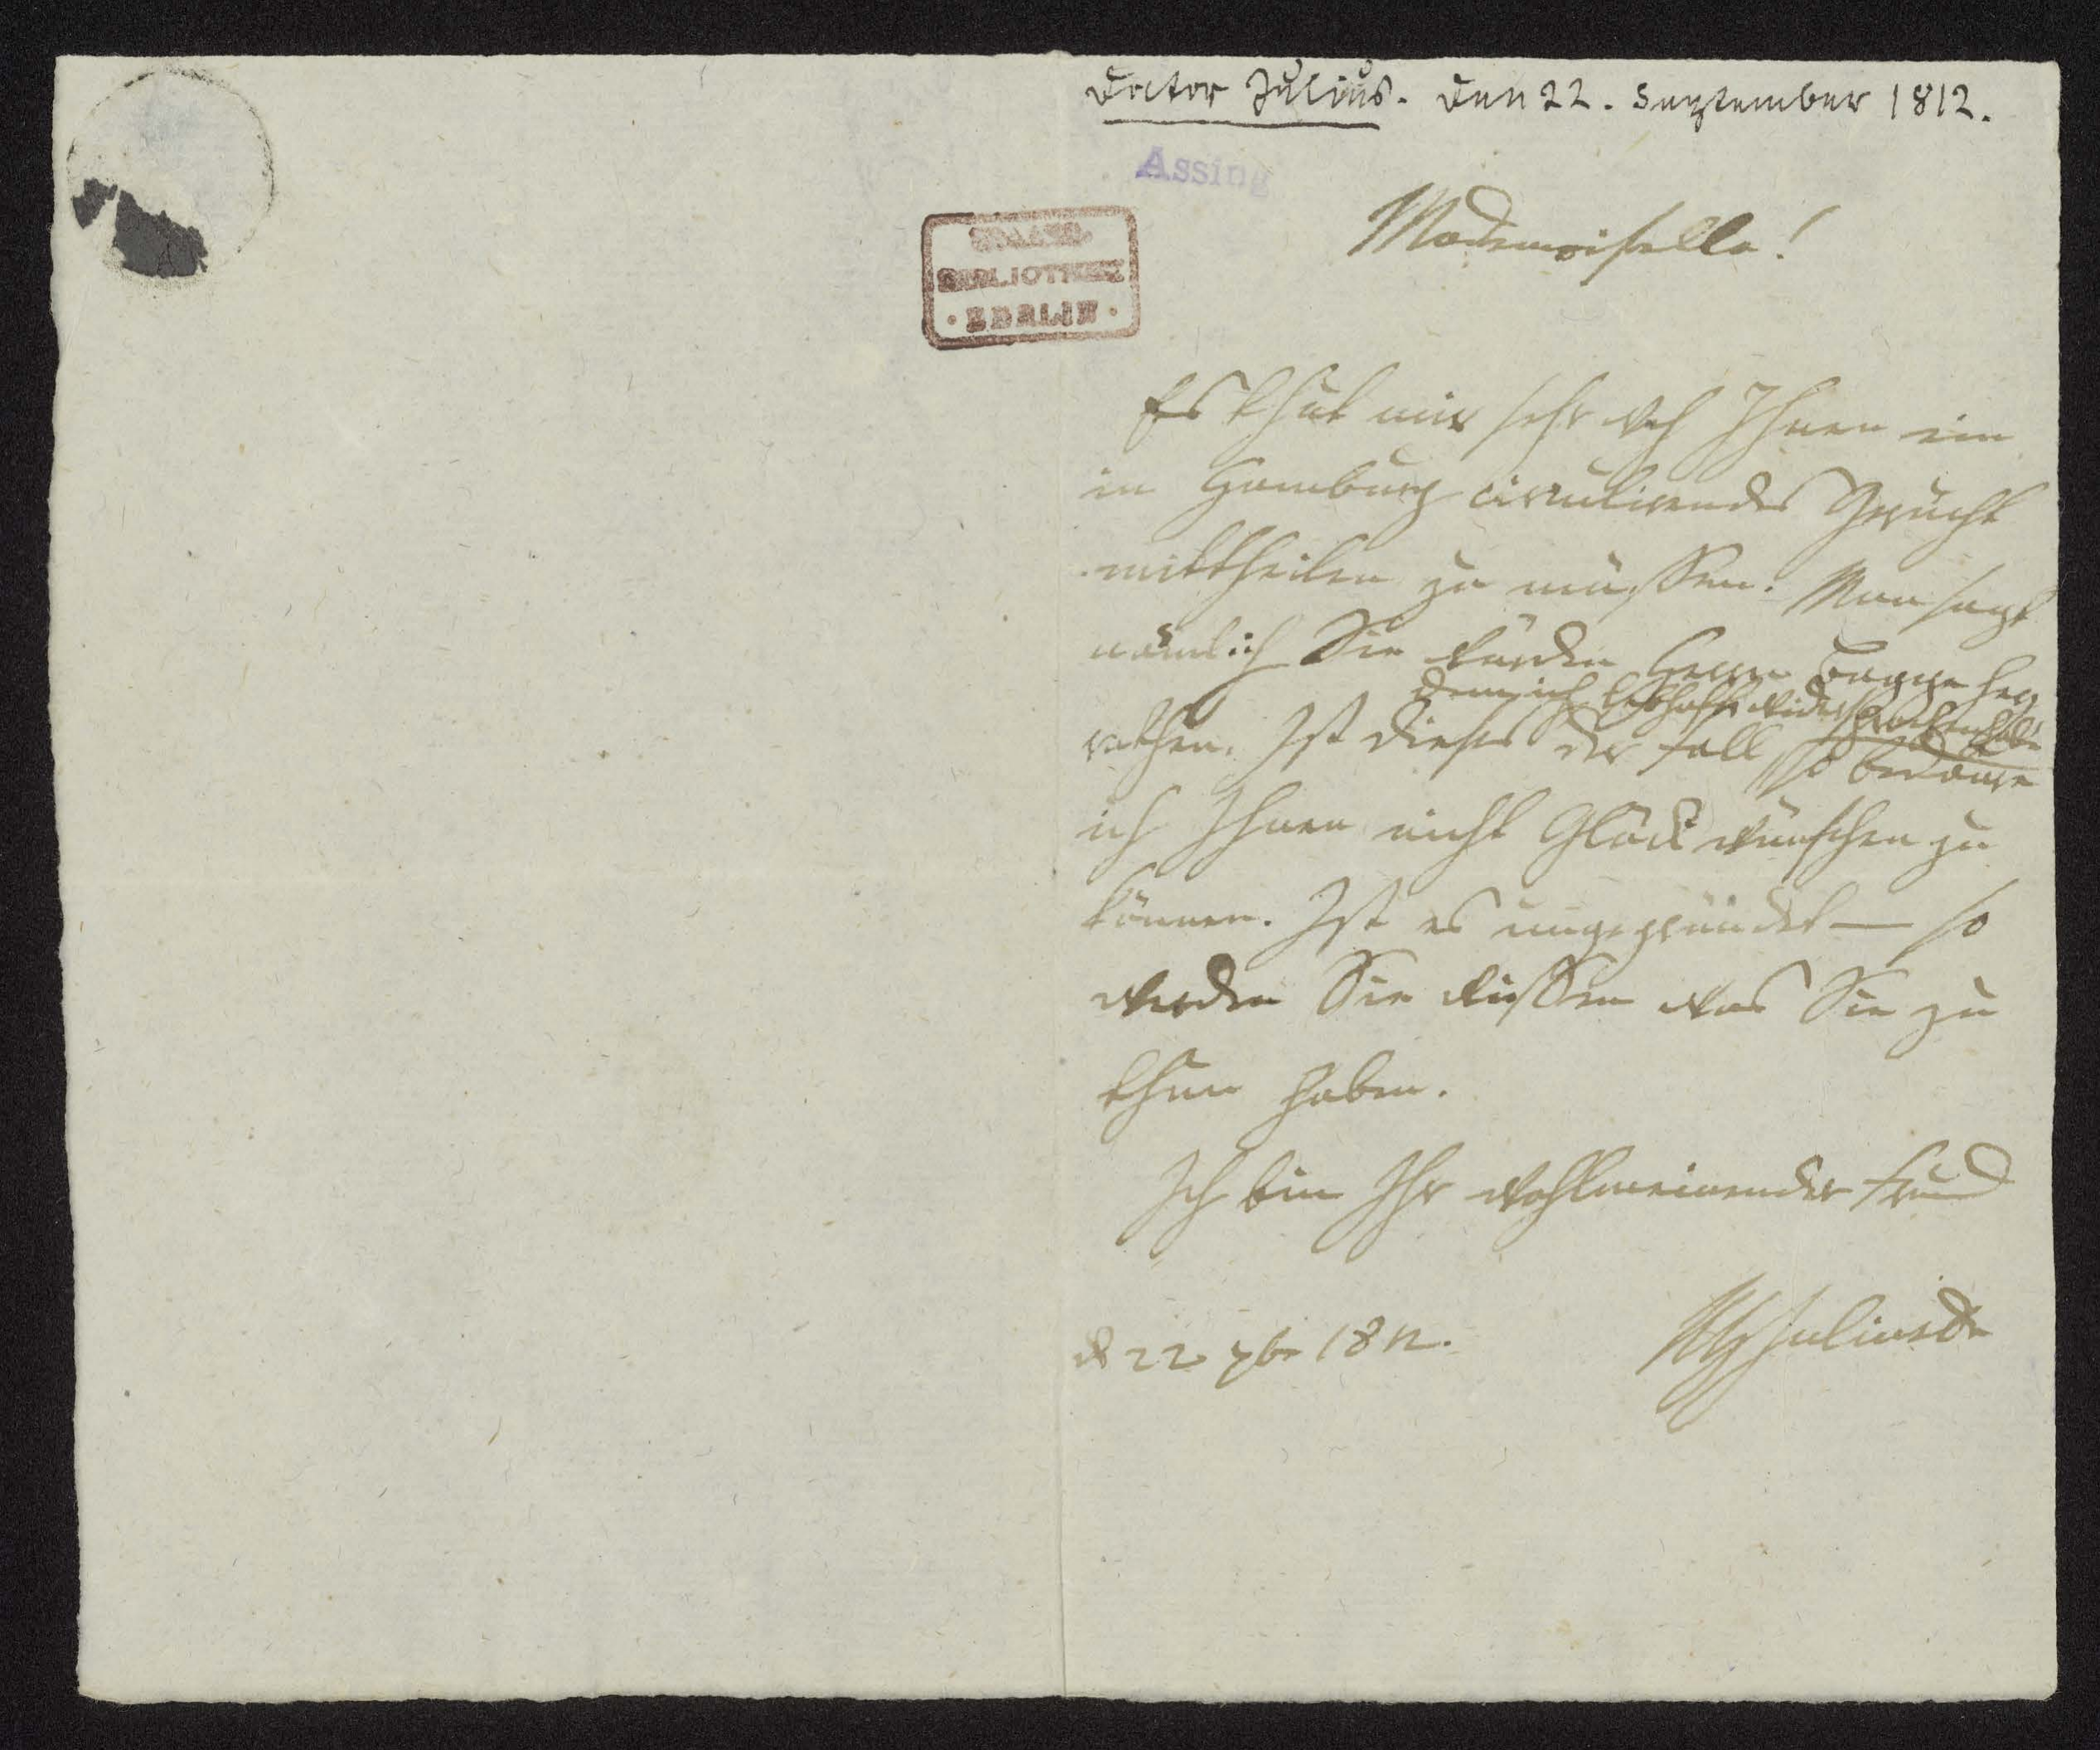 Doctor Julius. Den 22. September 1812.
Assing
STAATS-
BIBLIOTHEK
· BERLIN ·
Mademoiselle!
Es thut mir sehr weh Ihnen ein
in Hamburg circulirendes Gerücht
mittheilen zu müssen. Man sagt
nämlich Sie würden Herrn hey
dem ich lebhaft widersprochen habe
rathen. Ist dieses der Fall, so bedaure
ich Ihnen nicht Glück wünschen zu
können. Ist es ungegründet — so
werden Sie wissen was Sie zu
thun haben.
Ich bin Ihr wohlmeinender Freund
d 22 7br 1812.
Julius Dr